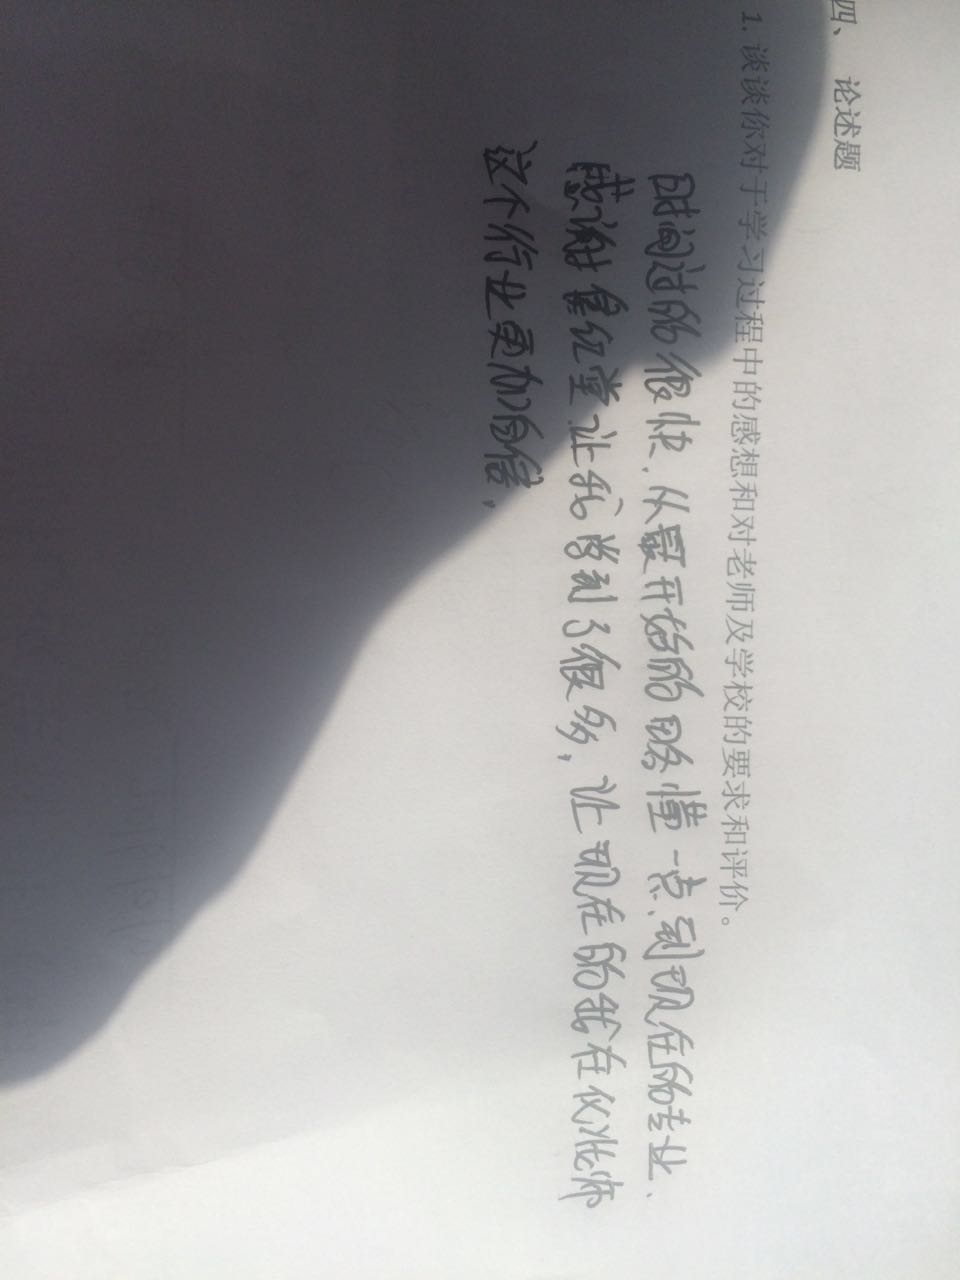 四、 论述题
1. 谈谈你对于学习过程中的感想和对老师及学校的要求和评价。
时间过的很快、从最开始的略懂一点、到现在的专业、
感谢星红堂让我学到了很多，让现在的我在化妆师
这个行业更加自信，